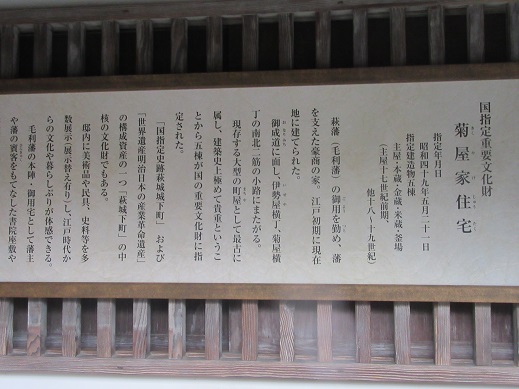 国指定重要文化財
菊屋家住宅
きくやけじゅうたく
指定年月日
昭和四十九年五月二十一日
指定建造物五棟
主屋・本蔵・金蔵・米蔵・釜場
(主屋十七世紀前期、
他十八~十九世紀)
萩藩(毛利藩)の御用を勤め、藩
を支えた豪商の家。江戸初期に現在
地に建てられた。
御成道に面し、伊勢屋横丁、菊屋横
丁の南北二筋の小路にまたがる。
現存する大型の町屋として最古に
属し、建築史上極めて貴重というこ
とから五棟が国の重要文化財に指
定された。
「国指定史跡萩城城下町」および
『世界遺産明治日本の産業革命遺産』
の構成資産の一つ「萩城下町」の中
核の文化財でもある。
邸内に美術品や民具、史料等を多
数展示(展示替え有り)し、江戸時代か
らの文化や暮らしぶりが体感できる。
毛利藩の本陣・御用宅として藩主
や藩の賓客をもてなした書院座敷や